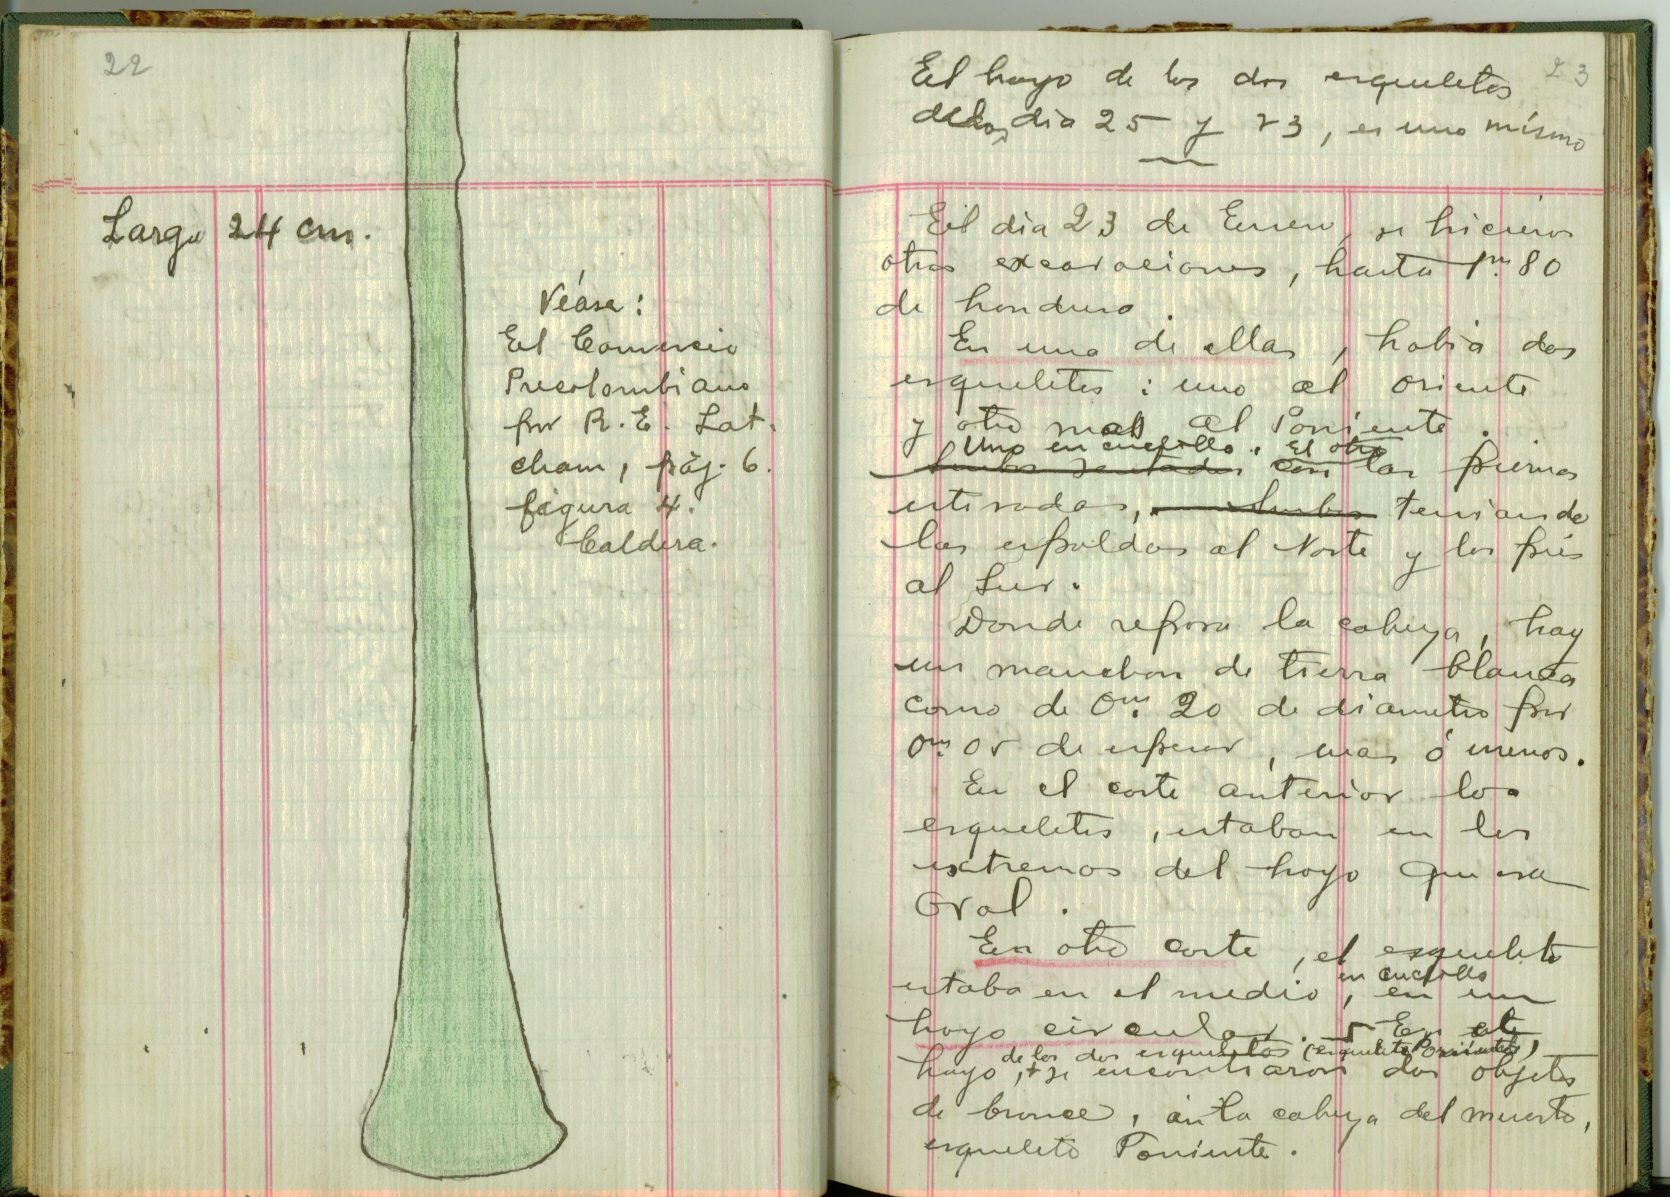 22
Largo 24 cm.
Véase:
El Comercio
Precolombiano
por R. E. Lat-
cham, pág. 6.
figura 4.
Caldera.
23
El hoyo de los dos esqueletos
de los dia 25 y 23, es uno mismo
El dia 23 de Enero, se hicieron
otras excavaciones, hasta 1m. 80
de hondura.
En una de ellas, habia dos
esqueletos: uno al oriente
y otro mas al Poniente.
Uno en cuclillo. El otro
Ambos sentados con las piernas
estiradas, Ambos teniando
las espaldas al Norte y los pies
al Sur.
Donde reposa la cabeza, hay
un manchon de tierra blanca
como de 0m. 20 de diametro por
0m. 05 de espesor, mas ó menos.
En el corte anterior los
esqueletos, estaban en los
extremos del hoyo que era
Oval.
En otro corte, el esqueleto
en cuclillo
estaba en el medio, en un
hoyo circular. En este
de los dos esqueletos (esqueleto Poniente)
hoyo, se encontraron dos objetos
de bronce, en la cabeza del muerto,
esqueleto Poniente.